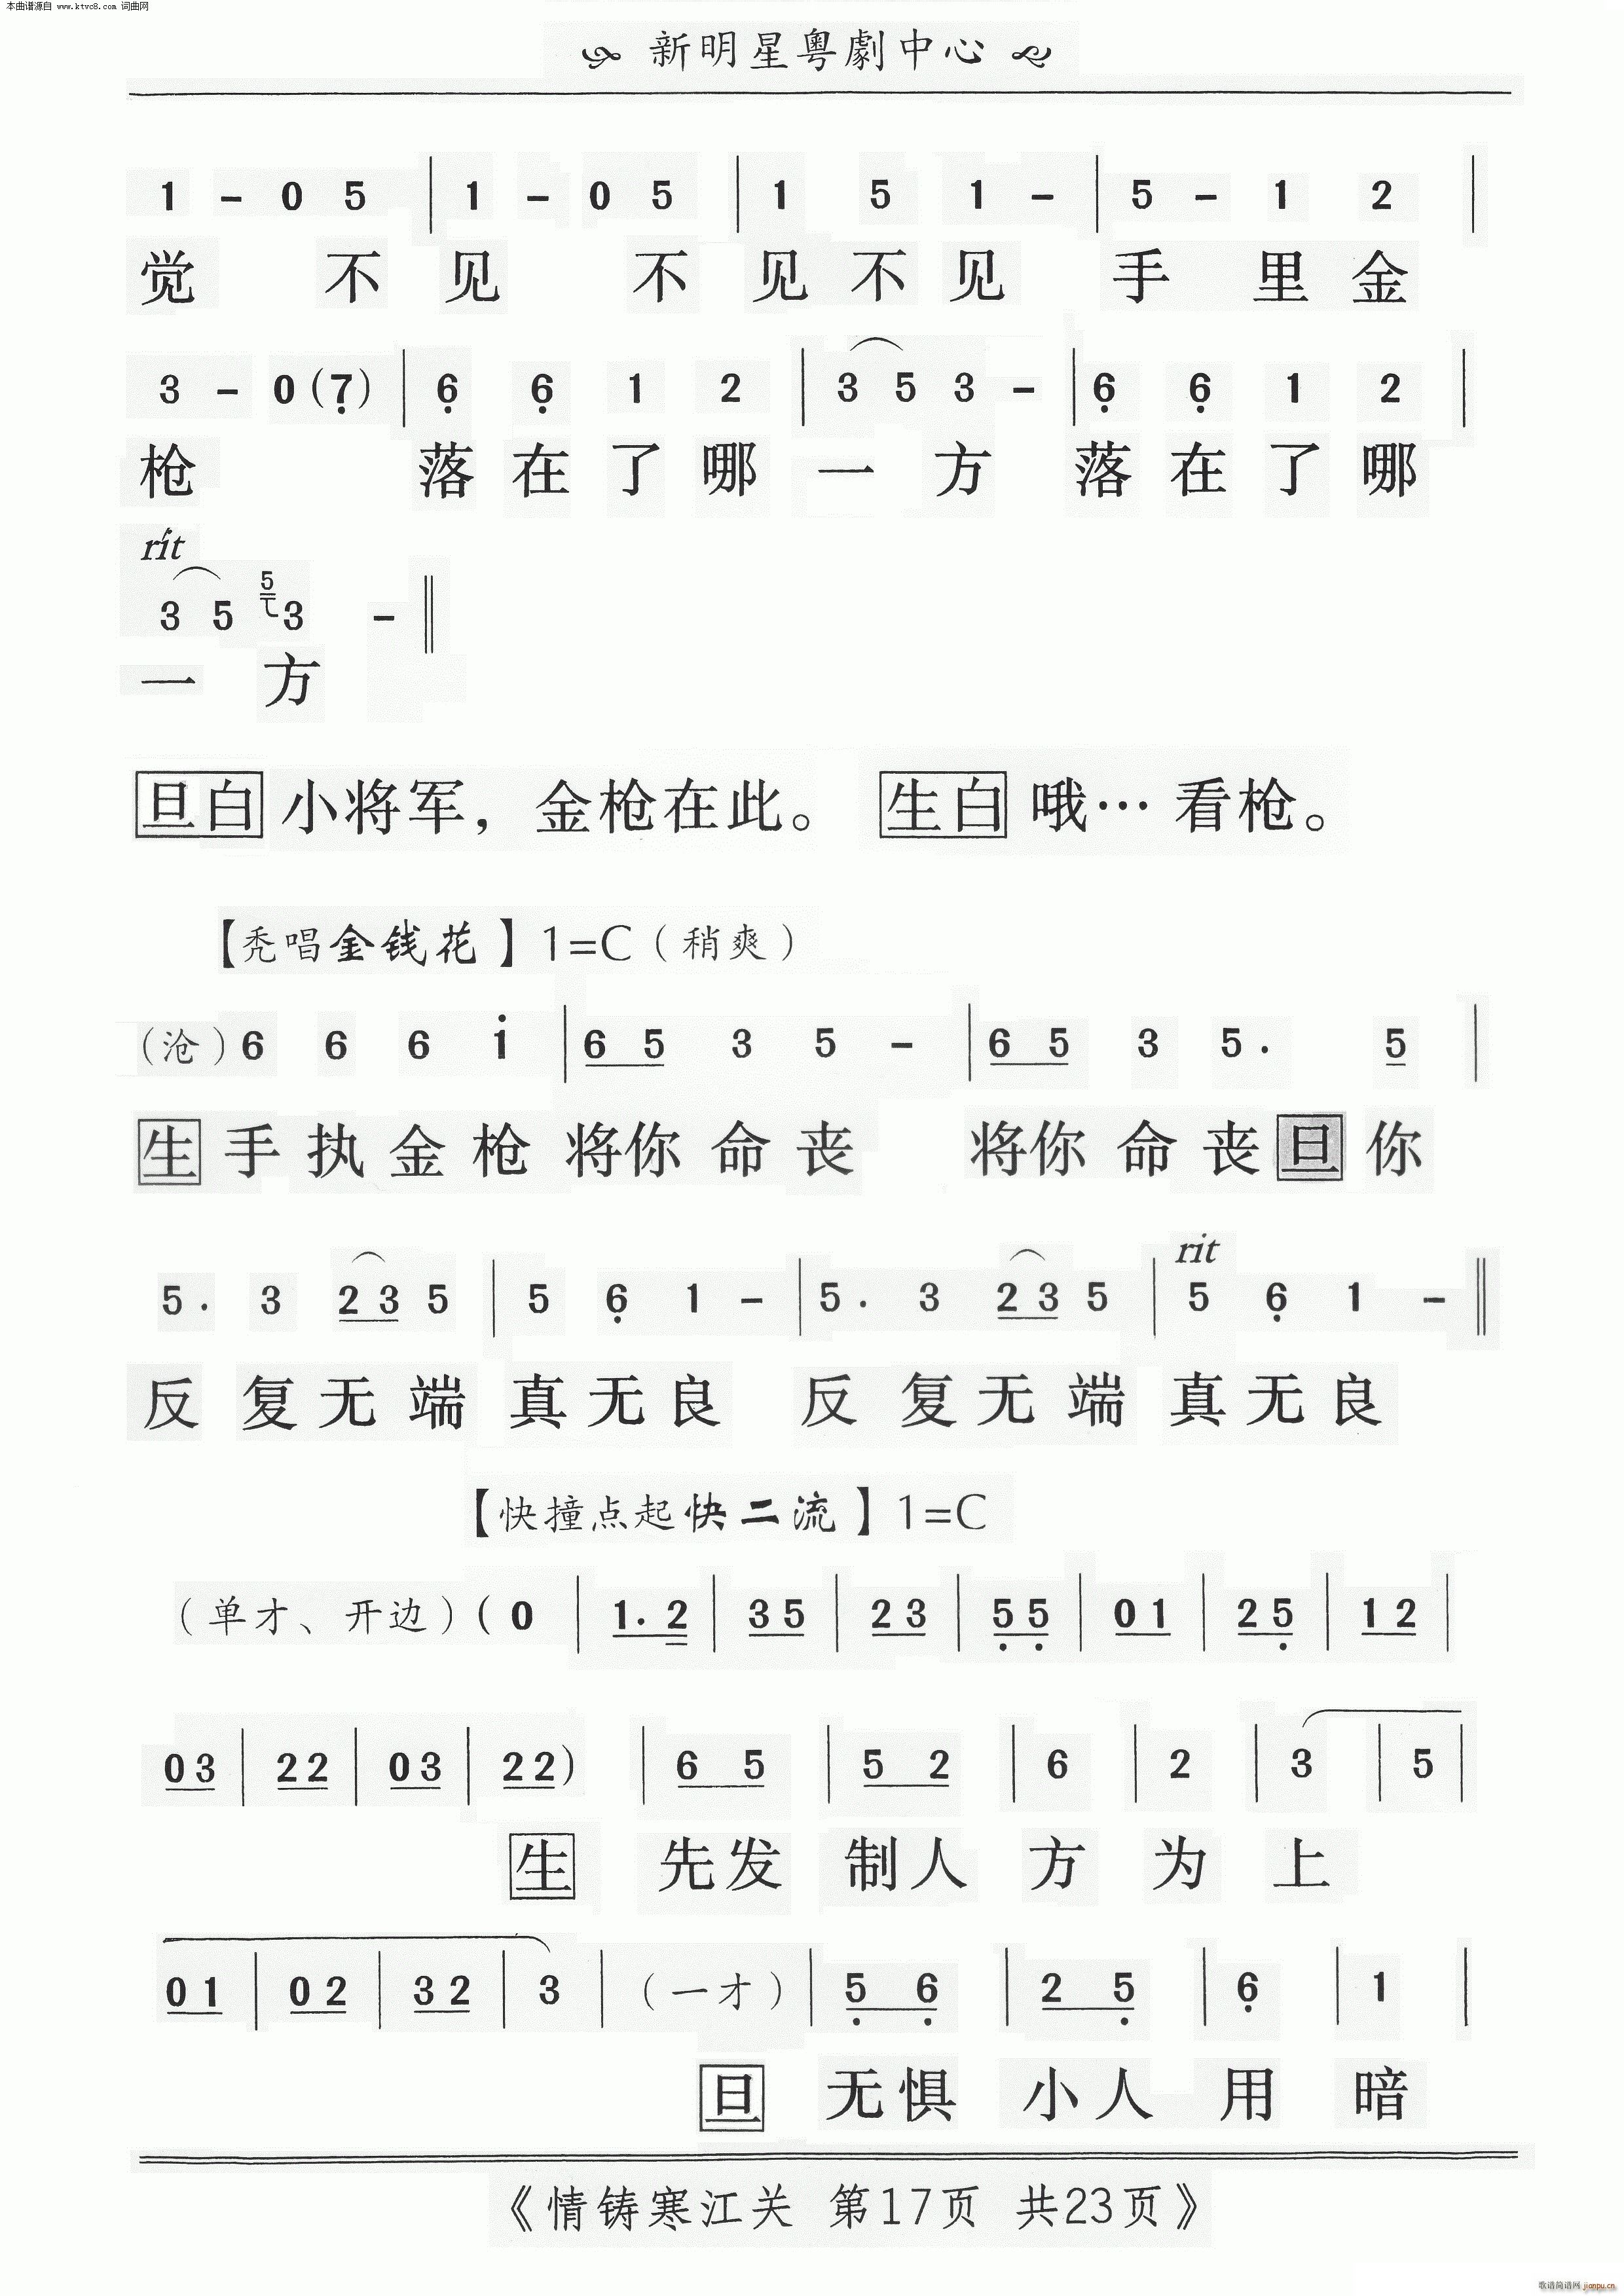 本曲谱源自 www.ktvc8.com 词曲网
新明星粤劇中心
1 - 0 5 | 1 - 0 5 | 1 5 1 - | 5 - 1 2 |
觉 不 见 不 见 不 见 手 里 金
3 - 0 (7̣) | 6̣ 6̣ 1 2 | 3 5 3 - | 6̣ 6̣ 1 2 |
枪 落 在 了 哪 一 方 落 在 了 哪
rit
3 5 5 3 - ‖
一 方
旦白 小将军，金枪在此。 生白 哦… 看枪。
【秃唱金钱花】1=C（稍爽）
（沧）6 6 6 1̇ | 6 5 3 5 - | 6 5 3 5. 5 |
生 手 执 金 枪 将 你 命 丧 将 你 命 丧 旦 你
rit
5. 3 2 3 5 | 5 6̣ 1 - | 5. 3 2 3 5 | 5 6̣ 1 - ‖
反 复 无 端 真 无 良 反 复 无 端 真 无 良
【快撞点起快二流】1=C
（单才、开边）(0 | 1. 2 | 3 5 | 2 3 | 5̣ 5̣ | 0 1 | 2 5̣ | 1 2 |
0 3 | 2 2 | 0 3 | 2 2) | 6 5 | 5 2 | 6 | 2 | 3 | 5 |
生 先 发 制 人 方 为 上
0 1 | 0 2 | 3 2 | 3 | （一才）| 5̣ 6̣ | 2 5̣ | 6̣ | 1 |
旦 无 惧 小 人 用 暗
《情铸寒江关 第17页 共23页》
歌谱简谱网 jianpu.cn